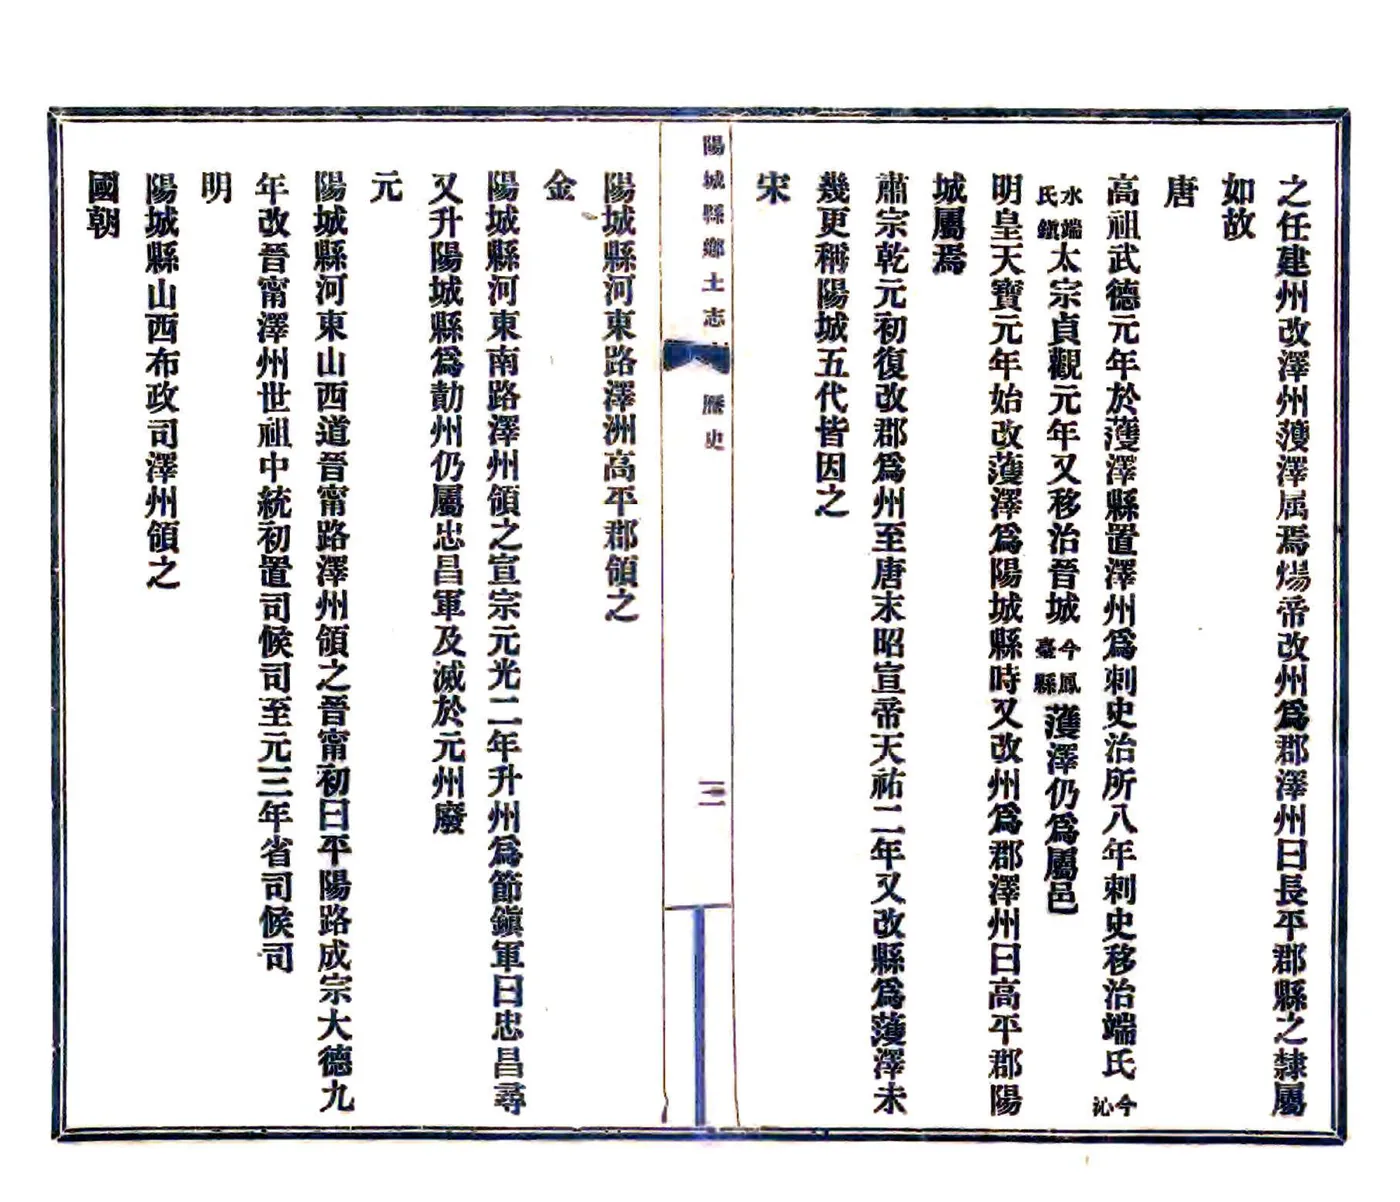 之任建州改澤州濩澤属焉煬帝改州爲郡澤州曰長平郡縣之隸屬
如故
唐
高祖武德元年於濩澤縣置澤州爲刺史治所八年刺史移治端氏今沁
水端氏鎭太宗貞觀元年又移治晉城今鳳臺縣濩澤仍爲屬邑
明皇天寶元年始改濩澤爲陽城縣時又改州爲郡澤州曰高平郡陽
城屬焉
肅宗乾元初復改郡爲州至唐末昭宣帝天祐二年又改縣爲濩澤未
幾更稱陽城五代皆因之
宋
陽城縣鄉土志
歷史
三
陽城縣河東路澤洲高平郡領之
金
陽城縣河東南路澤州領之宣宗元光二年升州爲節鎭軍曰忠昌尋
又升陽城縣爲勣州仍屬忠昌軍及滅於元州廢
元
陽城縣河東山西道晉甯路澤州領之晉甯初曰平陽路成宗大德九
年改晉甯澤州世祖中統初置司候司至元三年省司候司
明
陽城縣山西布政司澤州領之
國朝